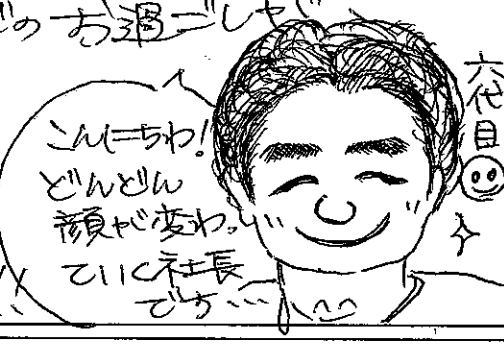 のお過ごしや
こんにちわ!
どんどん
顔が変わっ
ていく社長
です…
六代目